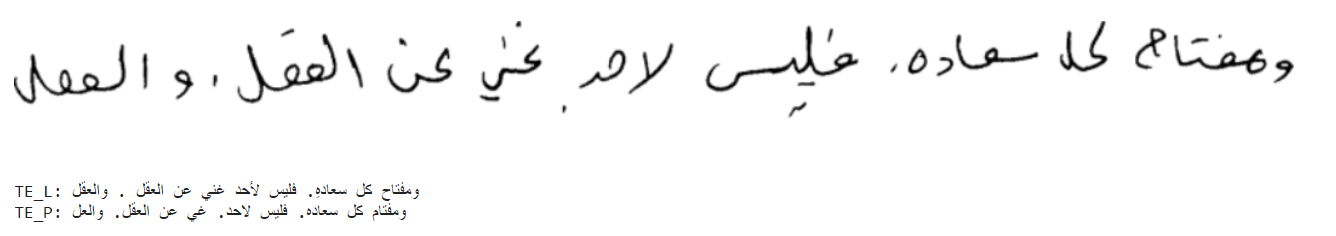 ومفتاح كل سعاده. فليس لاحد. غني عن العقل. والعقل
TE_L: ومفتاح كل سعادهِ. فليس لأحد غني عن العقل . والعقل
TE_P: ومفتام كل سعاده. فليس لاحد. غي عن العقل. والعل